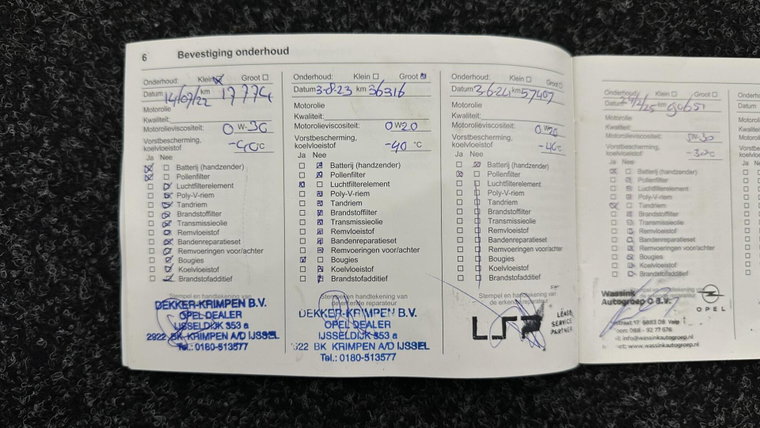 6 Bevestiging onderhoud
Onderhoud: Klein Groot
Datum 14/07/22 km 17774
Motorolie
Kwaliteit:
Motorolieviscositeit: 0 W-30
Vorstbescherming,
koelvloeistof -40°C
Ja Nee
Batterij (handzender)
Pollenfilter
Luchtfilterelement
Poly-V-riem
Tandriem
Brandstoffilter
Transmissieolie
Remvloeistof
Bandenreparatieset
Remvoeringen voor/achter
Bougies
Koelvloeistof
Brandstofadditief
Stempel en handtekening van
DEKKER-KRIMPEN B.V.
OPEL-DEALER
IJSSELDIJK 353 a
2922 BK KRIMPEN A/D IJSSEL
Tel.: 0180-513577
Onderhoud: Klein Groot
Datum 3-8-23 km 36316
Motorolie
Kwaliteit:
Motorolieviscositeit: 0 W20
Vorstbescherming,
koelvloeistof -40 °C
Ja Nee
Batterij (handzender)
Pollenfilter
Luchtfilterelement
Poly-V-riem
Tandriem
Brandstoffilter
Transmissieolie
Remvloeistof
Bandenreparatieset
Remvoeringen voor/achter
Bougies
Koelvloeistof
Brandstofadditief
Stempel en handtekening van
uitvoerende reparateur
DEKKER-KRIMPEN B.V.
OPEL DEALER
IJSSELDIJK 353 a
22 BK KRIMPEN A/D IJSSEL
Tel.: 0180-513577
Onderhoud: Klein Groot
Datum 3-6-24 km 57407
Motorolie
Kwaliteit:
Motorolieviscositeit: 0 W20
Vorstbescherming,
koelvloeistof
Ja Nee
Batterij (handzender)
Pollenfilter
Luchtfilterelement
Poly-V-riem
Tandriem
Brandstoffilter
Transmissieolie
Remvloeistof
Bandenreparatieset
Remvoeringen voor/achter
Bougies
Koelvloeistof
Brandstofadditief
Stempel en handtekening van
LEASE
SERVICE
PARTNER
Onderhoud: Klein Groot
Datum km
Motorolie
Kwaliteit:
Motorolieviscositeit: 5W-30
Vorstbescherming,
koelvloeistof
Ja Nee
Batterij (handzender)
Pollenfilter
Luchtfilterelement
Poly-V-riem
Tandriem
Brandstoffilter
Transmissieolie
Remvloeistof
Bandenreparatieset
Remvoeringen voor/achter
Bougies
Koelvloeistof
Brandstofadditief
Wassink
Autogroep B.V.
OPEL
info@wassinkautogroep.nl
www.wassinkautogroep.nl
Onderhoud:
Datum
Motorolie
Kwaliteit:
Ja Nee